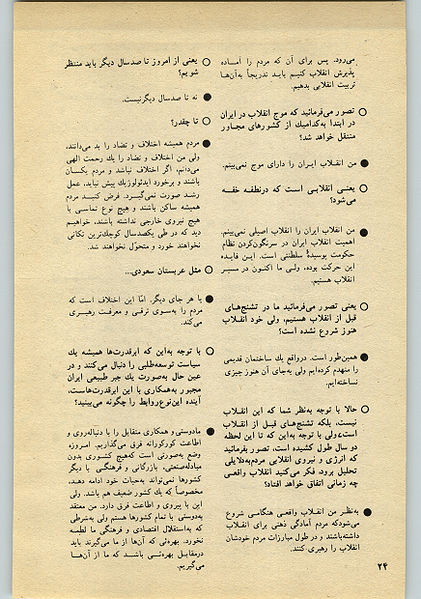 می‌رود. پس برای آن که مردم را آماده
پذیرش انقلاب کنیم باید تدریجاً به‌آن‌ها
تربیت انقلابی بدهیم.
○ تصور می‌فرمائید که موج انقلاب در ایران
در ابتدا به‌کدامیك از کشورهای مجاور
منتقل خواهد شد؟
● من انقلاب ایران را دارای موج نمی‌بینم.
○ یعنی انقلابی است که درنطفه خفه
می‌شود؟
● من انقلاب ایران را انقلاب اصیلی نمی‌بینم.
اهمیت انقلاب ایران در سرنگون‌کردن نظام
حکومت پوسیدهٔ سلطنتی است. این فایده
این حرکت بوده، ولی ما اکنون در مسیر
انقلاب هستیم.
○ یعنی تصور می‌فرمائید ما در تشنج‌های
قبل از انقلاب هستیم، ولی خود انقلاب
هنوز شروع نشده است؟
● همین‌طور است. درواقع یك ساختمان قدیمی
را منهدم کرده‌ایم ولی به‌جای آن هنوز چیزی
نساخته‌ایم.
○ حالا با توجه به‌نظر شما که این انقلاب
نیست، بلکه تشنج‌های قبل از انقلاب
است‌ولی با توجه به‌این که تا این لحظه
دو سال طول کشیده است، تصور بفرمائید
که انرژی و نیروی انقلابی مردم‌به‌دلایلی
تحلیل برود. فکر می‌کنید انقلاب واقعی
چه زمانی اتفاق خواهد افتاد؟
● به‌نظر من انقلاب واقعی هنگامی شروع
می‌شودکه مردم آمادگی ذهنی برای انقلاب
داشته‌باشند و در طول مبارزات مردم خودشان
انقلاب را رهبری کنند.
○ یعنی از امروز تا صدسال دیگر باید منتظر
شویم؟
● نه تا صدسال دیگرنیست.
○ تا چقدر؟
● مردم همیشه اختلاف و تضاد را بد می‌دانند،
ولی من اختلاف و تضاد را یك رحمت الهی
می‌دانم، اگر اختلاف نباشد و مردم یکسان
باشند و برخورد ایدئولوژیك پیش نیاید، عمل
رشد صورت نمی‌گیرد. فرض کنید مردم
همیشه ساکن باشند و هیچ نوع تماسی با
هیچ نیروی خارجی نداشته باشند، خواهیم
دید که در طی یکصدسال کوچك‌ترین تکانی
نخواهند خورد و متحوّل نخواهند شد.
○ مثل عربستان سعودی...
● یا هر جای دیگر. امّا این اختلاف است که
مردم را به‌سوی ترقی و معرفت رهبری
می‌کند.
○ با توجه به‌این که ابرقدرت‌ها همیشه یك
سیاست توسعه‌طلبی را دنبال می‌کنند و در
عین حال به‌صورت یك جبر طبیعی ایران
مجبور به‌همکاری با این ابرقدرت‌هاست،
آینده این‌نوع‌روابط را چگونه می‌بینید؟
● مادوستی و همکاری متقابل را با دنباله‌روی و
اطاعت کورکورانه فرق می‌گذاریم. امروزه
وضع به‌صورتی است که‌هیچ کشوری بدون
مبادله‌صنعتی، بازرگانی و فرهنگی با دیگر
کشورها نمی‌تواند به‌حیات خود ادامه دهد،
مخصوصاً که یك کشور ضعیف هم باشد. ولی
این با پیروی و اطاعت فرق دارد. من معتقد
به‌دوستی با تمام کشورها هستم ولی به‌شرطی
که‌به‌استقلال اقتصادی و فرهنگی ما لطمه
نخورد. بهره‌ئی که آن‌ها از ما می‌گیرند باید
درمقابل بهره‌ئی باشد که ما از آن‌ها
می‌گیریم.
۲۴